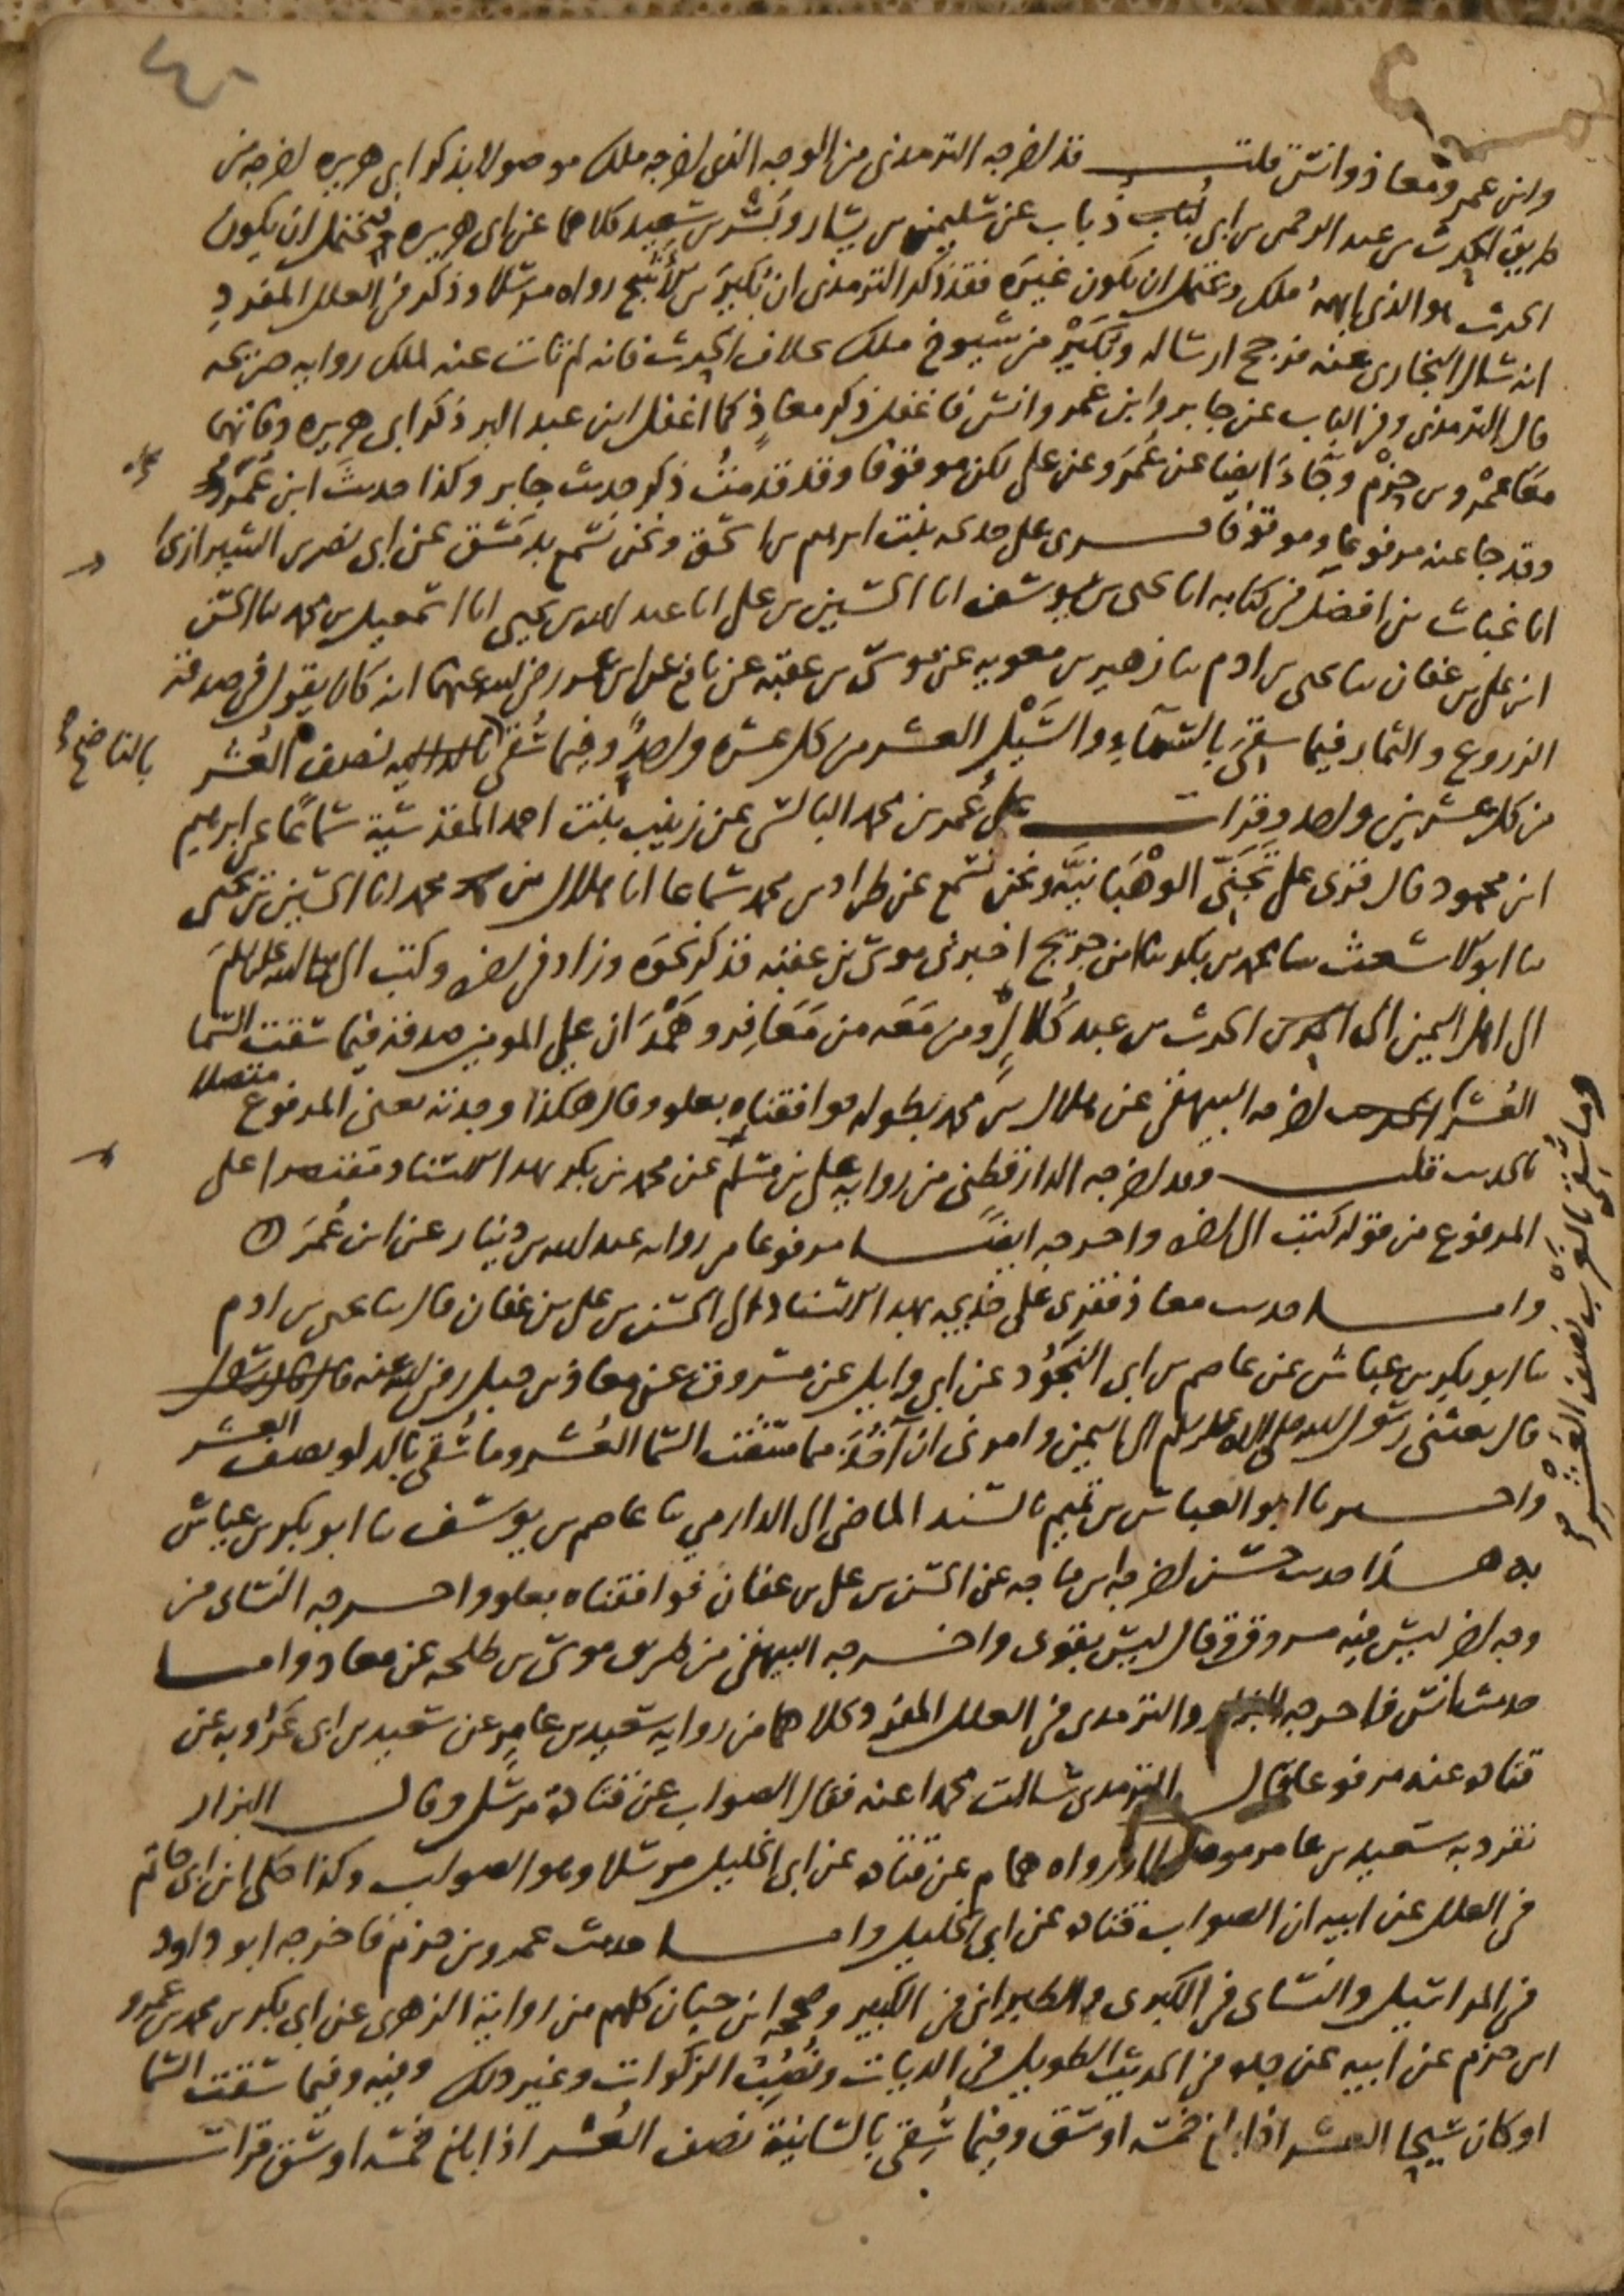 وابن عمر ومعاذ وانس قلت قد اخرجه الترمذي من الوجه الذي اخرجه ملك موصولا بذكر ابي هريره اخرجه من
طريق الحرث بن عبد الرحمن بن ابي ذباب عن سليمن بن يسار وبسر بن سعيد كلاهما عن ابي هريره فيحتمل ان يكون
الحرث هو الذي ابهمه ملك ويحتمل ان يكون غيره فقد ذكر الترمذي ان بكير بن الاشج رواه مرسلا وذكر في العلل المفرد
انه سال البخاري عنه فرجح ارساله وبكير من شيوخ ملك بخلاف الحرث فانه لم تات عنه لملك روايه صريحه
قال الترمذي وفي الباب عن جابر وابن عمر وانس فاغفل ذكر معاذ كما اغفل ابن عبد البر ذكر ابي هريره وفاتهما
معا عمرو بن حزم وجاء ايضا عن عمر وعن علي لكن موقوفا وقد قدمت ذكر حديث جابر وكذا حديث ابن عمر
وقد جا عنه مرفوعا وموقوفا قرى على خديجه بنت ابرهيم بن اسحق ونحن نسمع بدمشق عن ابي نصر بن الشيرازي
انا غياث بن افضل في كتابه انا يحيى بن يوسف انا الحسين بن علي انا عبد الله بن يحيى انا اسمعيل بن محمد نا الحسن
ابن علي بن عفان نا يحيى بن ادم نا زهير بن معويه عن موسى بن عقبه عن نافع عن ابن عمر رضي الله عنهما انه كان يقول في صدقة
الزروع والثمار فيما سقي بالسماء والسيل العشر من كل عشره واحد وفيما سقي نصف العشر
بالناضح
من كل عشرين واحد وقرات على عمر بن محمد البالسي عن زينب بنت احمد المقدسية سماعا عن ابرهيم
ابن محمود قال قرى على تجني الوهبانيه ونحن نسمع عن طراد بن محمد سماعا انا هلال بن محمد انا الحسين بن يحيى
نا ابو الاشعث نا محمد بن بكر نا ابن جريج اخبرني موسى بن عقبه فذكر نحوه وزاد في اخره وكتب النبي صلى الله عليه وسلم
الى اهل اليمن الى الحرث بن عبد كلال ومن معه من معافر وهمدان ان على المومنين صدقة فيما سقت السما
العشر الحديث اخرجه البيهقي عن هلال بن محمد بطوله فوافقناه بعلو وقال هكذا وجدته يعني المرفوع متصلا
بالحديث قلت وقد اخرجه الدارقطني من روايه علي بن مسلم عن محمد بن بكر بهذا الاسناد مقتصرا على
المرفوع من قوله كتب الى اخره واخرجه ايضا مرفوعا من روايه عبد الله بن دينار عن ابن عمر
واما حديث معاذ فقرى على خديجه بهذا الاسناد الى الحسن بن علي بن عفان قال نا يحيى بن ادم
نا ابو بكر بن عياش عن عاصم بن ابي النجود عن ابي وايل عن مسروق عن معاذ بن جبل رضي الله عنه
قال بعثني رسول الله صلى الله عليه وسلم الى اليمن وامرني ان آخذ مما سقت السما العشر وما سقي بالدلو نصف العشر
واخبرنا ابو العباس بن تميم بالسند الماضي الى الدارمي نا عاصم بن يوسف نا ابو بكر بن عياش
به هذا حديث حسن اخرجه ابن ماجه عن الحسن بن علي بن عفان فوافقناه بعلو واخرجه النساى من
وجه اخر ليس فيه مسروق وقال ليس بقوى واخرجه البيهقي من طريق موسى بن طلحه عن معاذ واما
حديث انس فاخرجه البزار والترمذي في العلل المفرد كلاهما من روايه سعيد بن عامر عن سعيد بن ابي عروبه عن
قتاده عنه مرفوعا قال الترمذي سالت محمدا عنه فقال الصواب عن قتادة مرسل وقال البزار
تفرد به سعيد بن عامر موصولا ورواه همام عن قتاده عن ابي الخليل مرسلا وهو الصواب وكذا حكى ابن ابي حاتم
في العلل عن ابيه ان الصواب قتاده عن ابي الخليل واما حديث عمرو بن حزم فاخرجه ابو داود
في المراسيل والنساى في الكبرى والطبراني في الكبير وصححه ابن حبان كلهم من رواية الزهري عن ابي بكر بن محمد بن عمرو
ابن حزم عن ابيه عن جده في الحديث الطويل في الديات ونصب الزكوات وغير ذلك وفيه وفيما سقت السما
او كان سيحا العشر اذا بلغ خمسة اوسق وفيما سقي بالسانية نصف العشر اذا بلغ خمسة اوسق قرات
وما سقي بالغرب نصف العشر